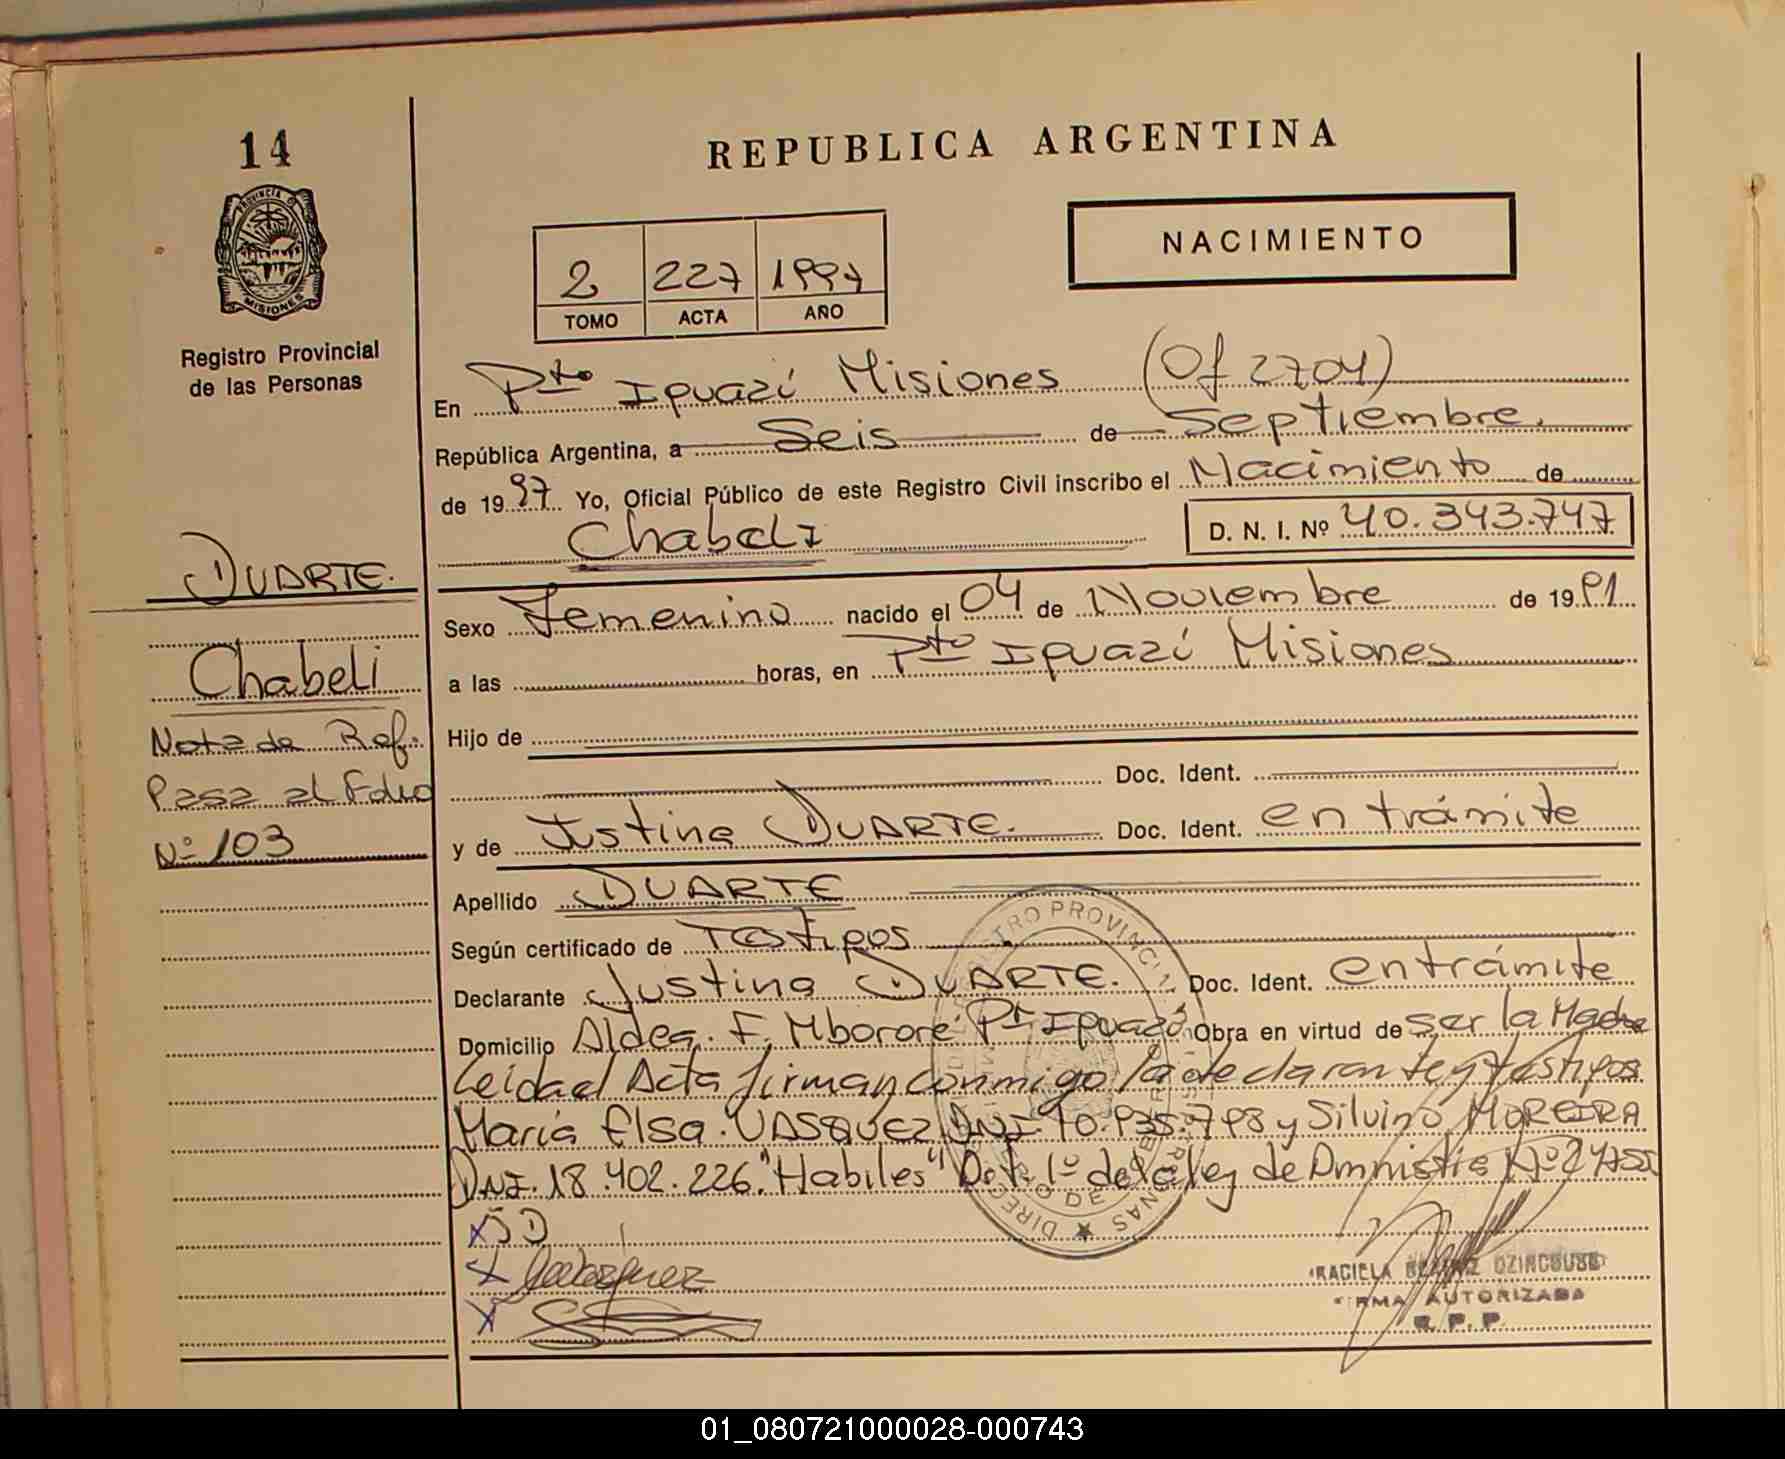 14
PROVINCIA DE
MISIONES
Registro Provincial
de las Personas
REPUBLICA ARGENTINA
NACIMIENTO
2 227 1997
TOMO ACTA AÑO
En Pto Iguazú Misiones (Of 2704)
República Argentina, a Seis de Septiembre.
de 1997 Yo, Oficial Público de este Registro Civil inscribo el Nacimiento de
Chabeli D. N. I. Nº 40.343.747
DUARTE.
Chabeli
Nota de Ref.
Pasa al Folio
Nº 103
Sexo Femenino nacido el 04 de Noviembre de 1991
a las horas, en Pto Iguazú Misiones
Hijo de
Doc. Ident.
y de Justina DUARTE. Doc. Ident. en trámite
Apellido DUARTE
Según certificado de Testigos
Declarante Justina DUARTE. Doc. Ident. en trámite
Domicilio Aldea. F. Mbororé Pto Iguazú Obra en virtud de ser la Madre
Leida el Acta firman conmigo la declarante y testigos
María Elsa VASQUEZ DNI. 10.935.798 y Silvino MOREIRA
DNI. 18.402.226. "Habiles" Art. 1º de la ley de Amnistia Nº 24755
X JD
X
X
GRACIELA BEATRIZ
FIRMA AUTORIZADA
R. P. P.
01_080721000028-000743